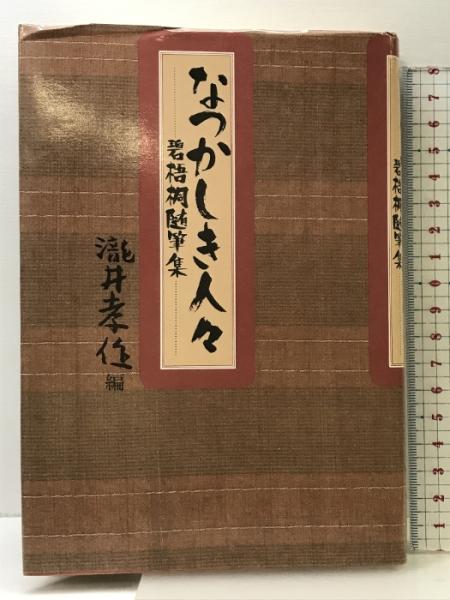 なつかしき人々
碧梧桐随筆集
瀧井孝作編
碧梧桐随筆集
1 2 3 4 5 6 7 8 9 0 1 2 3 4 5 6 7 8